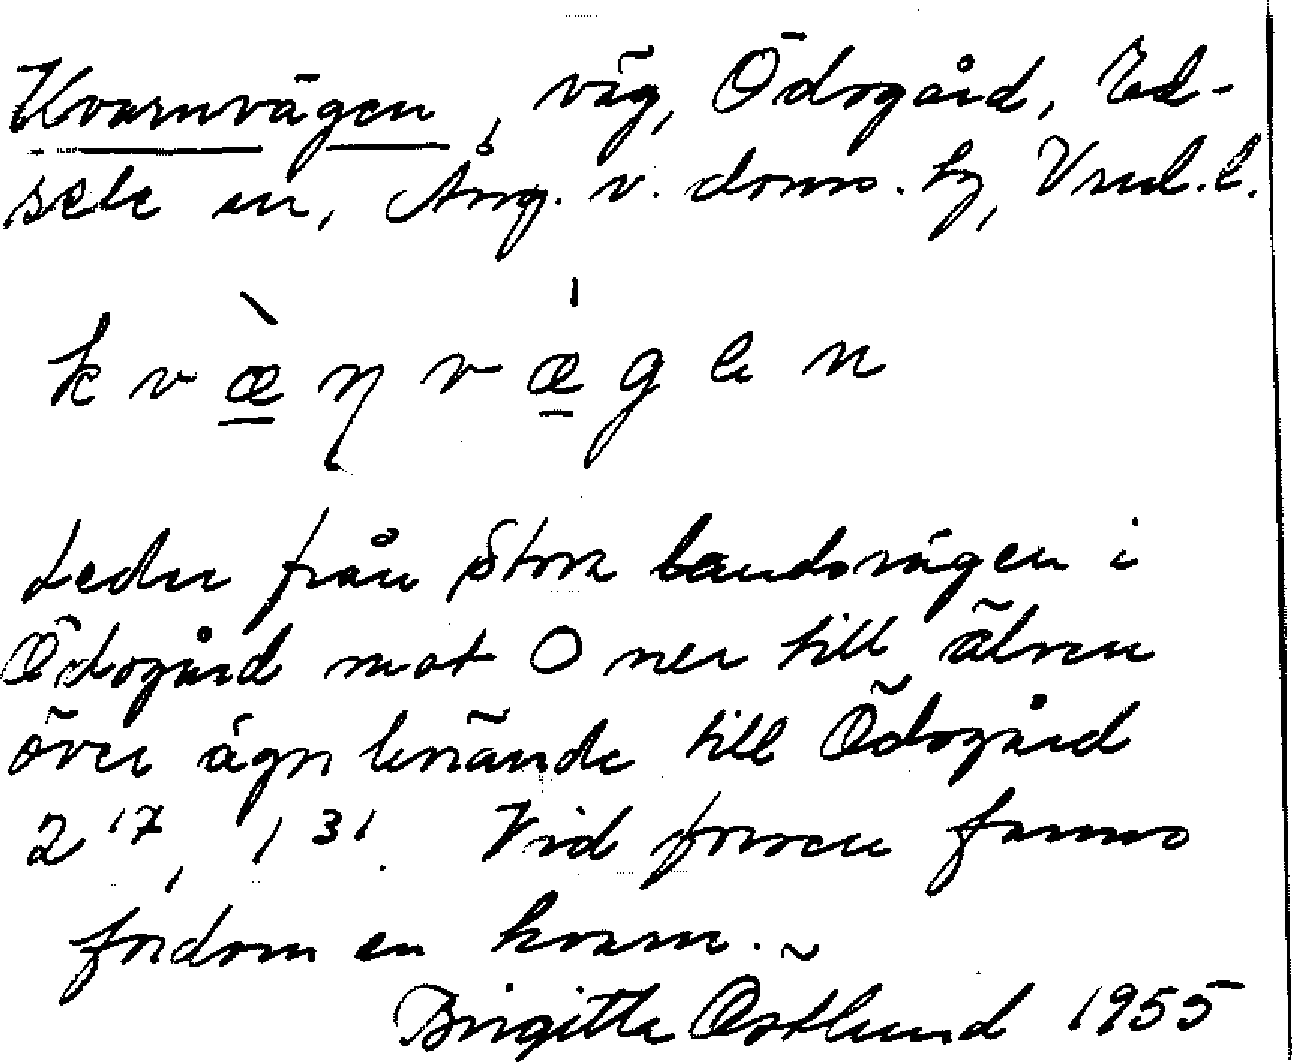 Kvarnvägen, väg, Ödsgård, Ed-
sele sn, Ång. v. doms. hz, Vnl. l.
kvæ̀ɳvǽgen
Leder från Stora landsvägen i
Ödsgård mot O ner till älven
över ägor hörande till Ödsgård
2 17, 1 31. Vid forsen fanns
fordom en kvarn.
Birgitta Östlund 1955